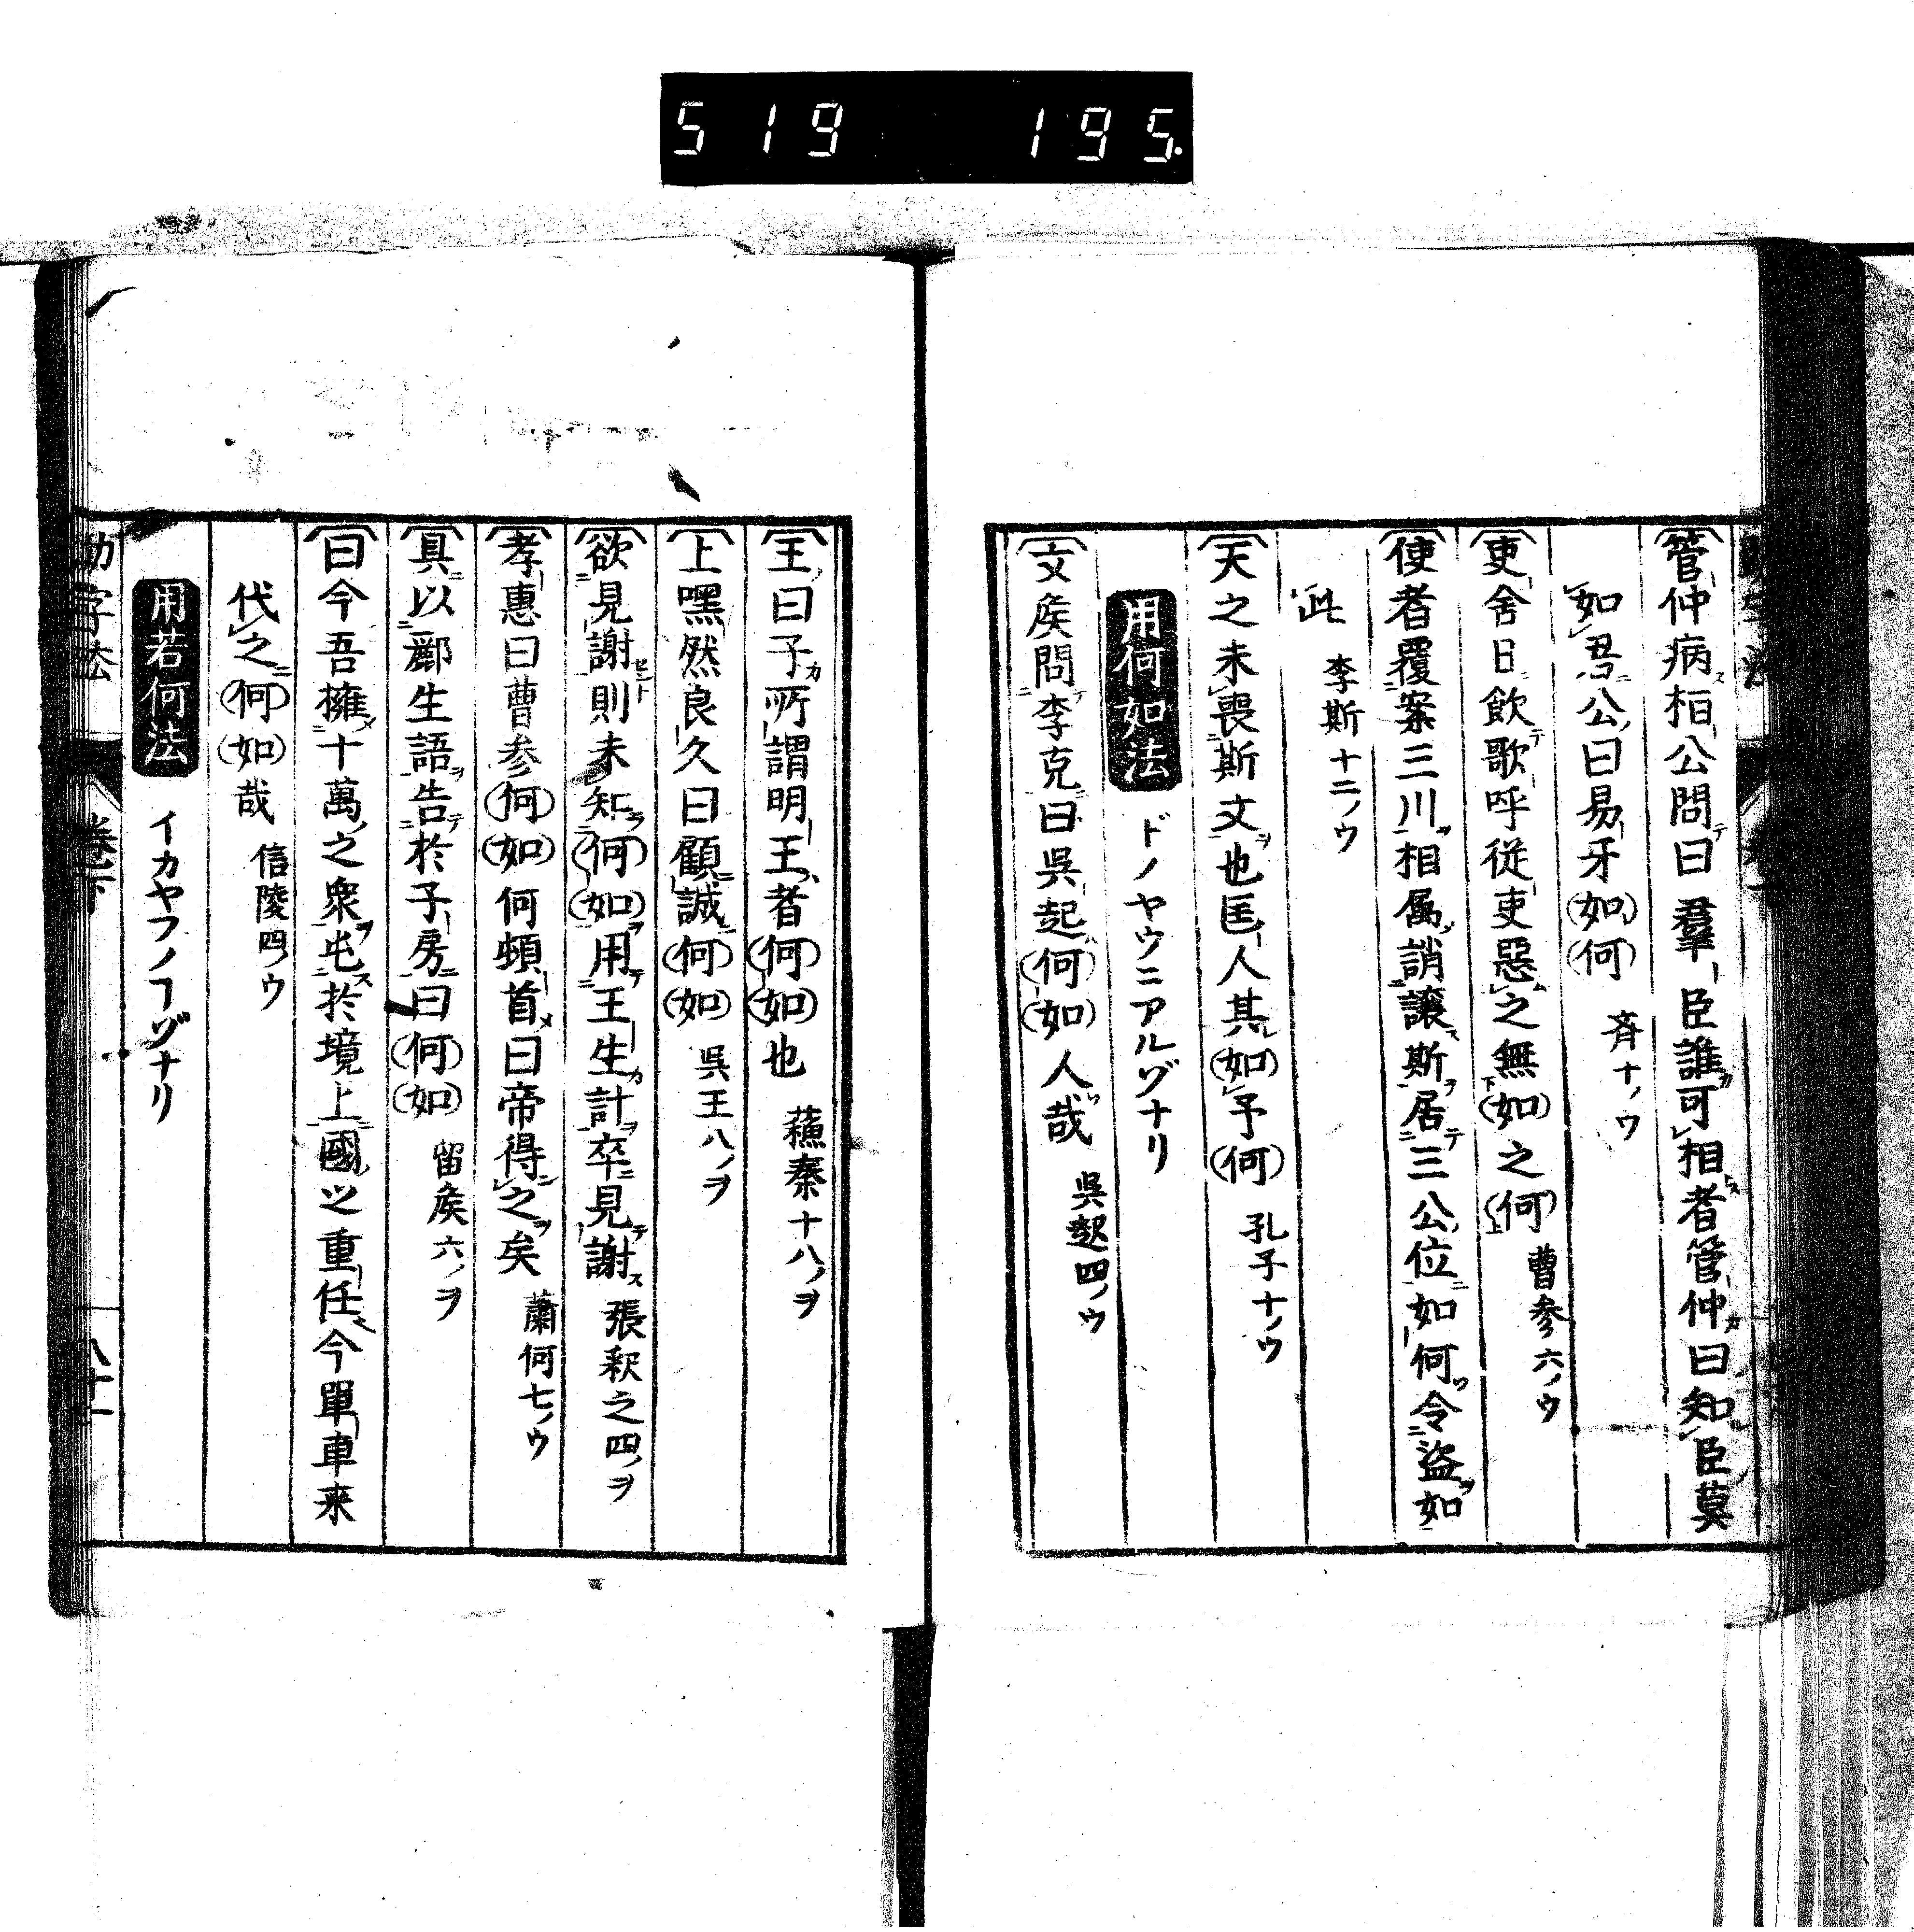 519 195.
管仲病桓公問曰羣臣誰可相者管仲曰知臣莫
如君公曰易牙(如)(何) 斉十ノウ
吏舍日飲歌呼従吏惡之無(如)之(何) 曹参六ノウ
使者覆案三川相属誚譲斯居三公位如何令盗如
此 李斯十二ノウ
天之未喪斯文也匡人其(如)予(何) 孔子十ノウ
用何如法 ドノヤウニアルゾナリ
文矦問李克曰呉起(何)(如)人哉 呉起四ノウ
王曰子所謂明王者(何)(如)也 蘓秦十八ノヲ
上嘿然良久曰顧誠(何)(如) 呉王八ノヲ
欲見謝則未知(何)(如)用王生計卒見謝 張釈之四ノヲ
孝惠曰曹参(何)(如)何頓首曰帝得之矣 蕭何七ノウ
具以酈生語告於子房曰(何)(如) 留矦六ノヲ
曰今吾擁十萬之衆屯於境上國之重任今單車来
代之(何)(如)哉 信陵四ノウ
用若何法 イカヤフノヿゾナリ
助字法 巻下 八十一